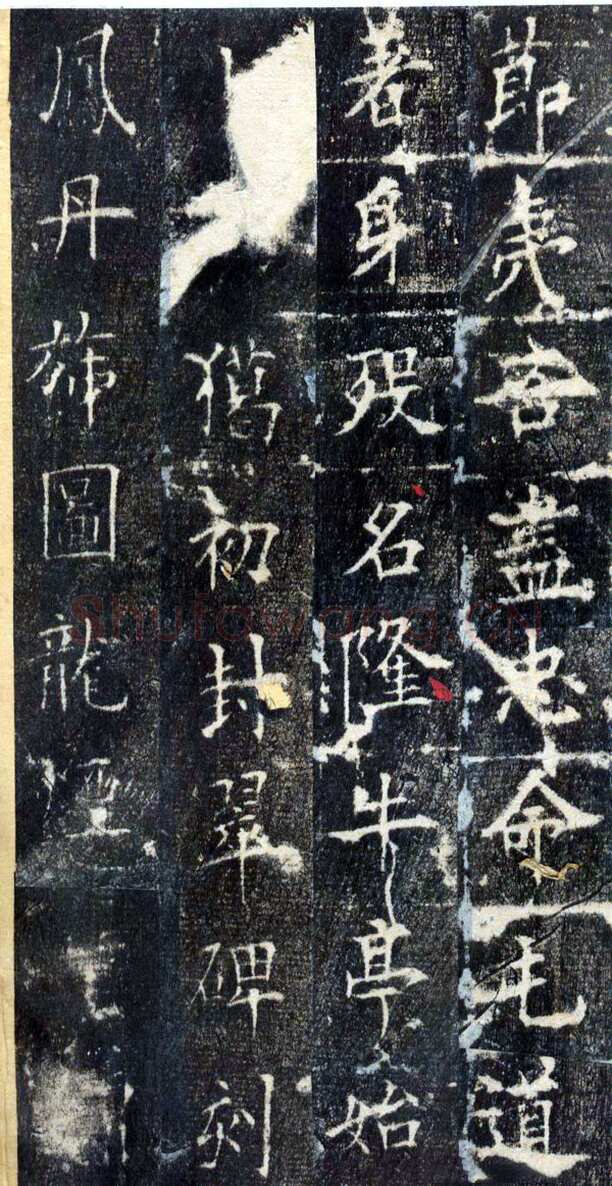 節處吝盡忠命屯道
著身殁名隆牛亭始
獦初封翠碑刻
鳳丹旆圖龍煙
Shufawang.CN